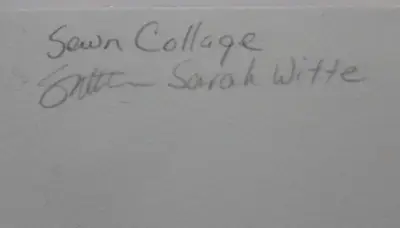 Sewn Collage
Sarah Witte